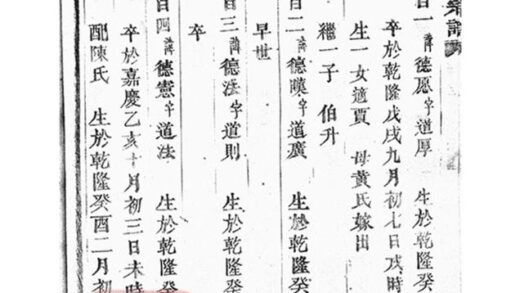 百一 諱德愿字道厚 生於乾隆癸
卒於乾隆戊戌九月初七日戌時
生一女適賈 母黃氏嫁出
繼一子 伯升
百二 諱德暎字道廣 生於乾隆癸
早世
百三 諱德法字道則 生於乾隆癸
卒
百四 諱德憲字道法 生於乾隆癸
卒於嘉慶乙亥十月初三日未時
配陳氏 生於乾隆癸酉二月初